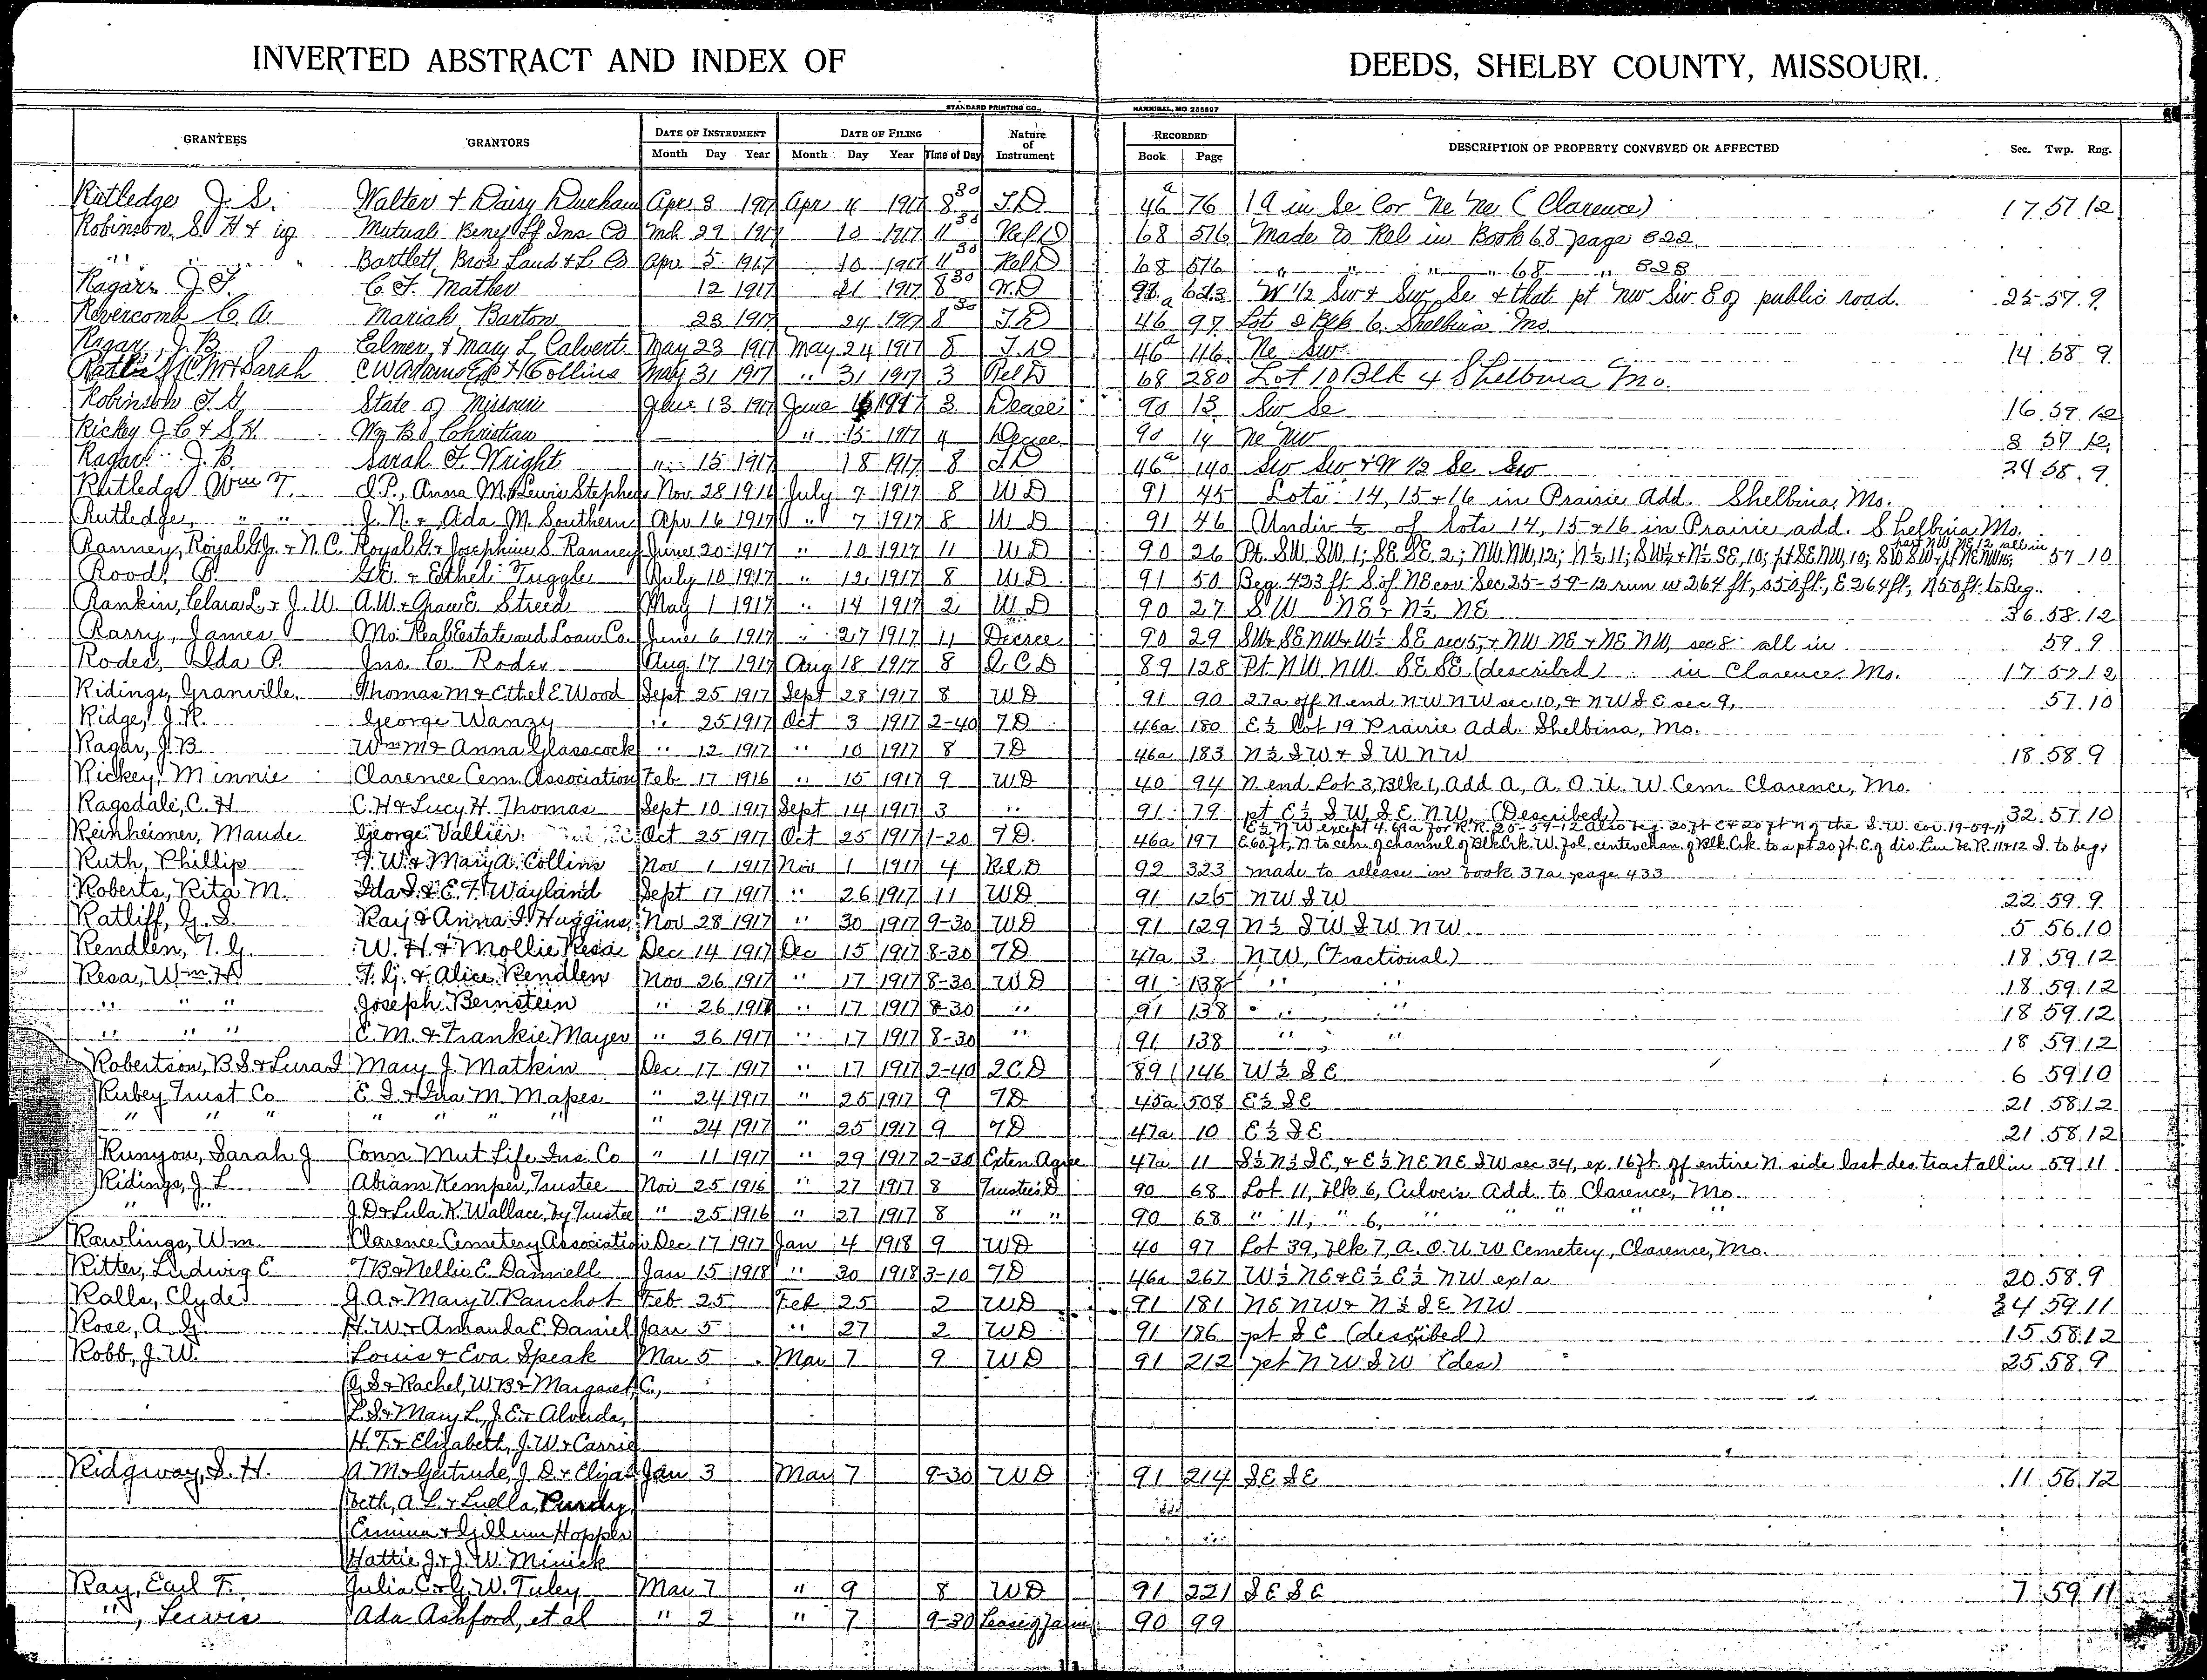 INVERTED ABSTRACT AND INDEX OF DEEDS, SHELBY COUNTY, MISSOURI.
STANDARD PRINTING CO., HANNIBAL, MO 255597
GRANTEES GRANTORS DATE OF INSTRUMENT DATE OF FILING Nature of Instrument RECORDED DESCRIPTION OF PROPERTY CONVEYED OR AFFECTED Sec. Twp. Rng.
Month Day Year Month Day Year Time of Day Book Page
Rutledge J. S. Walter & Daisy Durham Apr 3 1917 Apr 4 1917 8 30 T.D 46a 76 1 a in Se Cor Ne Ne (Clarence) 17 57 12
Robinson, S. H & Mutual Benef Lf Ins Co Mch 29 1917 10 1917 11 30 Rel D 68 576 Made to Rel in Book 68 page 522
" " Bartlett Bros Land & L Co Apr 5 1917 10 1917 11 30 Rel D 68 576 " " " 68 " 528
Ragar J. F. C. F. Mather 12 1917 21 1917 8 30 W.D 623 W 1/2 Sw & Sw Se & that pt Nw Sw E of public road. 25 57 9
Revercomb C. A. Mariah Barton 23 1917 24 1917 8 30 T D 46a 97 Lot 2 Blk 6 Shelbina Mo
Ragar, J. B. Elmer & Mary L Calvert May 23 1917 May 24 1917 8 T.D 46a 116 Ne Sw 14 58 9
& Sarah C W Adams H Collins May 31 1917 " 31 1917 3 Rel D 68 280 Lot 10 Blk 4 Shelbina Mo.
Robinson T. G State of Missouri June 13 1917 June 1917 3 Decree 90 13 Sw Se 16 59 12
Rickey J C & S. H. Wm B Christian " 15 1917 4 Decree 90 14 Ne Nw 8 57 12
Ragar J. B. Sarah F. Wright " 15 1917 18 1917 8 T.D 46a 140 Sw Sw & W 1/2 Se Sw 24 58 9
Rutledge Wm T. J. P., Anna M. & Lewis Stephens Nov 28 1916 July 7 1917 8 W D 91 45 Lots 14, 15 & 16 in Prairie Add. Shelbina, Mo.
Rutledge, " " J. N. & Ada M. Southern Apr 16 1917 " 7 1917 8 W D 91 46 Undiv ½ of Lots 14, 15 & 16 in Prairie add. Shelbina Mo.
Ranney, Royal G. Jr. & N. C. Royal G. & Josephine S. Ranney June 20 1917 " 10 1917 11 W D 90 26 Pt. SW SW 1; SE SE 2; NW NW, 12; N½ 11; SW¼ & N½ SE, 10; pt SE NW, 10; SW SW & pt NE NW 12; part NW NE 12 all in 57 10
Rood, B. G. E. & Ethel Tuggle July 10 1917 " 12 1917 8 W D 91 50 Beg. 423 ft S of NE cor. Sec 25-59-12 run w 264 ft, S 50 ft, E 264 ft, N 50 ft. to Beg.
Rankin, Clara L. & J. W. A. W. & Grace E. Streed May 1 1917 " 14 1917 2 W D 90 27 SW NE & N½ NE 36 58 12
Rarry, James Mo. Real Estate and Loan Co. June 6 1917 " 27 1917 11 Decree 90 29 SW & SE NW & W½ SE sec 5, & NW NE & NE NW, sec 8 all in 59 9
Rodes, Ida P. Jno. C. Rodes Aug 17 1917 Aug 18 1917 8 Q C D 89 128 Pt. NW NW SE SE (described) in Clarence Mo. 17 57 12
Ridings, Granville Thomas M & Ethel E Wood Sept 25 1917 Sept 28 1917 8 WD 91 90 27a off N end NW NW sec 10, & NW SE sec 9, 57 10
Ridge, J. R. George Wanzy " 25 1917 Oct 3 1917 2-40 TD 46a 180 E½ Lot 19 Prairie Add. Shelbina, Mo.
Ragar, J. B. Wm M & Anna Glasscock " 12 1917 " 10 1917 8 TD 46a 183 N½ SW & SW NW 18 58 9
Rickey, Minnie Clarence Cem. Association Feb 17 1916 " 15 1917 9 WD 40 94 N end Lot 3, Blk 1, Add A, A. O. U. W. Cem. Clarence, Mo.
Ragsdale, C. H. C. H & Lucy H. Thomas Sept 10 1917 Sept 14 1917 3 " 91 79 pt E½ SW SE NW, (Described) 32 57 10
Reinheimer, Maude George Vallier Oct 25 1917 Oct 25 1917 1-20 TD 46a 197 E½ NW except 4.69a for R.R. 25-59-12 Also beg. 20 ft E & 20 ft N of the S.W. cor. 19-59-11 E 60 ft, N to cen. of channel of Blk Crk. W. fol. center chan. of Blk Crk. to a pt 20 ft. E. of div. line be. R. 11 & 12 S. to beg.
Ruth, Phillip F. W. & Mary A. Collins Nov 1 1917 Nov 1 1917 4 Rel. D 92 323 made to release in Book 37a page 433
Roberts, Rita M. Ida S. & E. F. Wayland Sept 17 1917 " 26 1917 11 WD 91 125 NW SW 22 59 9
Ratliff, G. S. Ray & Anna S. Huggins Nov 28 1917 " 30 1917 9-30 WD 91 129 N½ SW SW NW 5 56 10
Rendlen, T. G. W. H. & Mollie Resa Dec 14 1917 Dec 15 1917 8-30 TD 47a 3 NW (Fractional) 18 59 12
Resa, Wm H T. G. & Alice Rendlen Nov 26 1917 " 17 1917 8-30 WD 91 138 " " 18 59 12
" " " Joseph Bernstein " 26 1917 " 17 1917 8-30 " 91 138 " " 18 59 12
" " " E. M. & Frankie Mayer " 26 1917 " 17 1917 8-30 " 91 138 " " 18 59 12
Robertson, B S & Lura I Mary J. Matkin Dec 17 1917 " 17 1917 2-40 QCD 89 146 W½ SE 6 59 10
Rubey Trust Co E. S & Ida M. Mapes " 24 1917 " 25 1917 9 TD 45a 508 E½ SE 21 58 12
" " " " " " " " 24 1917 " 25 1917 9 TD 47a 10 E½ SE 21 58 12
Runyon, Sarah J Conn Mut Life Ins. Co " 11 1917 " 29 1917 2-30 Exten Agree 47a 11 S½ N½ SE, & E½ NE NE SW sec 34, ex. 16 ft. off entire N. side last des tract all in 59 11
Ridings, J. L Abram Kemper, Trustee Nov 25 1916 " 27 1917 8 Trustee's D 90 68 Lot 11, Blk 6, Culvers Add. to Clarence, Mo.
" " J. D & Lula K. Wallace, by Trustee " 25 1916 " 27 1917 8 " " 90 68 " 11, " 6, " " " " "
Rawlings, Wm. Clarence Cemetery Association Dec 17 1917 Jan 4 1918 9 WD 40 97 Lot 39, Blk 7, A. O. U. W Cemetery, Clarence, Mo.
Ritter, Ludwig E T B & Nellie E. Damrell Jan 15 1918 " 30 1918 3-10 TD 46a 267 W½ NE & E½ E½ NW ex 1a 20 58 9
Ralls, Clyde J. A. & Mary V. Panchot Feb 25 Feb 25 2 WD 91 181 NE NW & N½ SE NW 34 59 11
Rose, A. G. H. W. & Amanda E. Daniel Jan 5 " 27 2 WD 91 186 pt SE (described) 15 58 12
Robb, J. W. Louis & Eva Speak Mar 5 Mar 7 9 WD 91 212 pt NW SW (des) 25 58 9
G. S & Rachel, W. B & Margaret C.,
L. S. & Mary L., J. E. & Alveda,
H. F. & Elizabeth, J. W. & Carrie
Ridgway, S. H. A M & Gertrude, J. D. & Eliza Jan 3 Mar 7 9-30 WD 91 214 SE SE 11 56 12
beth, A L & Luella, Purdy,
Emma & Gillum Hopper
Hattie J. & J. W. Minick
Ray, Earl F. Julia C. & G. W. Tuley Mar 7 " 9 8 WD 91 221 SE SE 7 59 11
" , Lewis Ada Ashford, et al " 2 " 7 9-30 Lease of Farm 90 99